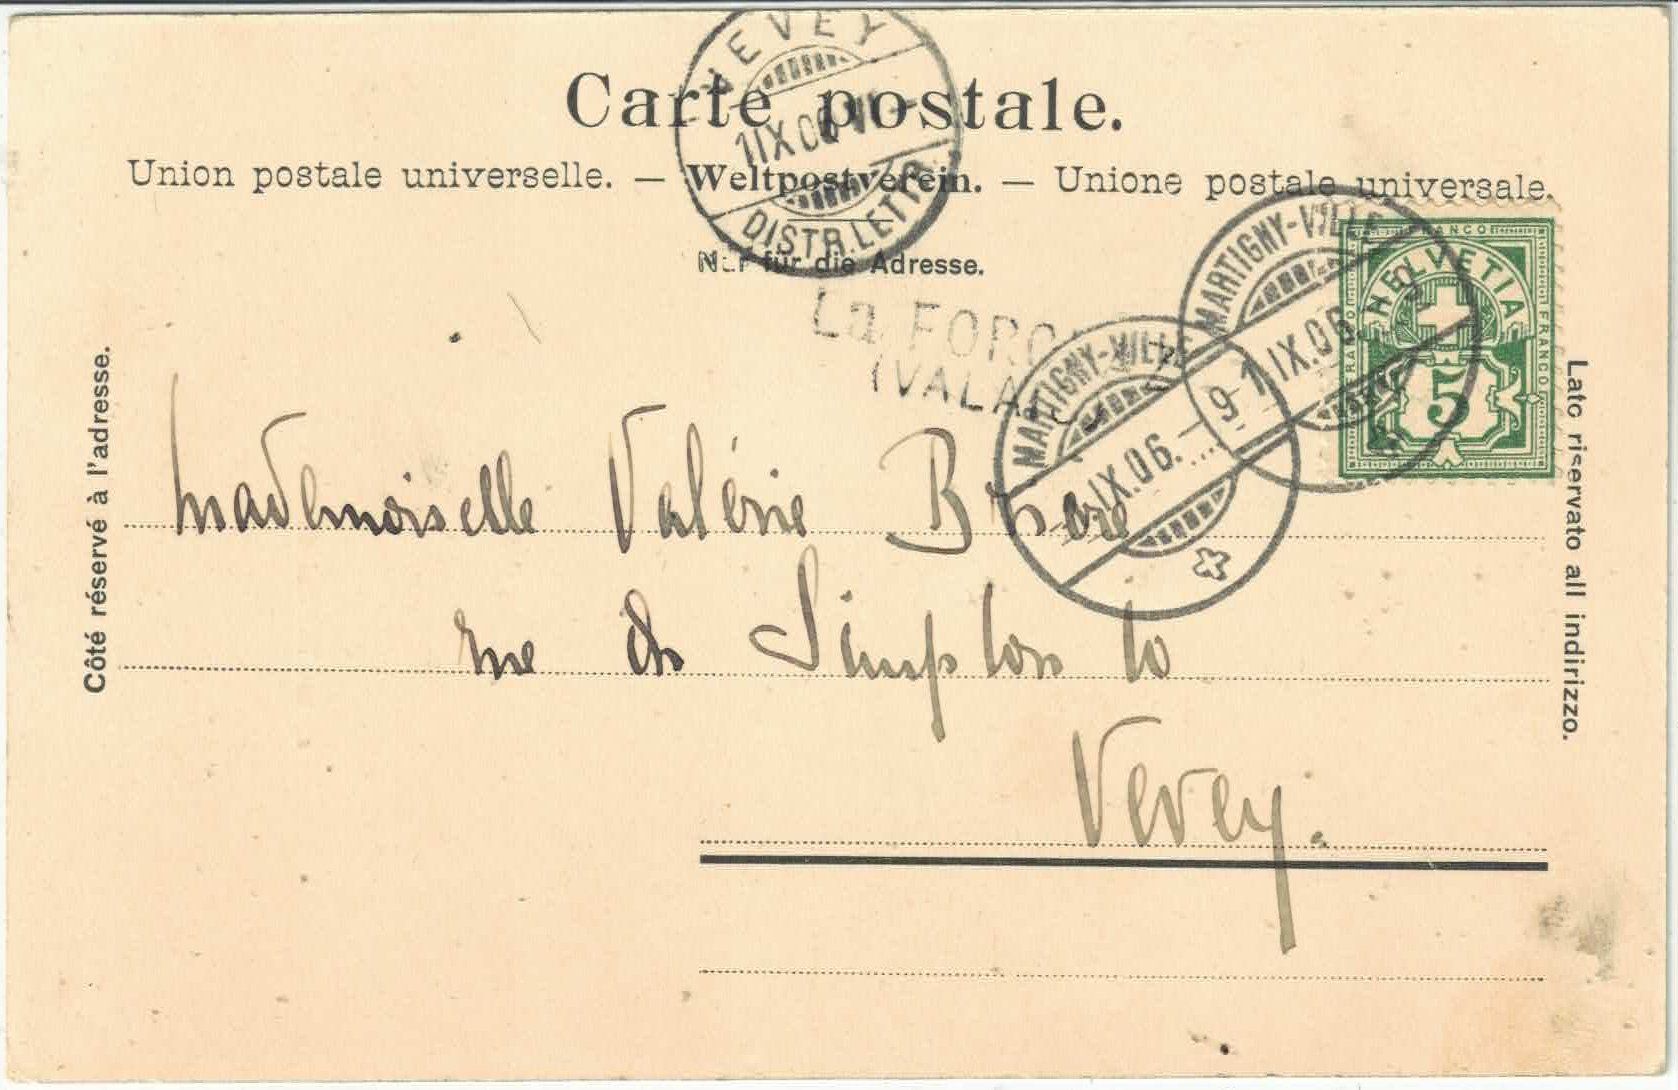 VEVEY
1 IX 06 VI -
DISTR. LETTR.
Carte postale.
Union postale universelle. — Weltpostverein. — Unione postale universale.
Nur für die Adresse.
La FORC
(VALA
MARTIGNY-VILLE
IX.06. - 9
MARTIGNY-VILLE
1 IX.06. 9
FRANCO
HELVETIA
FRANCO
5
Côté réservé à l'adresse.
Lato riservato all indirizzo.
Mademoiselle Valérie
rue du Simplon 10
Vevey.